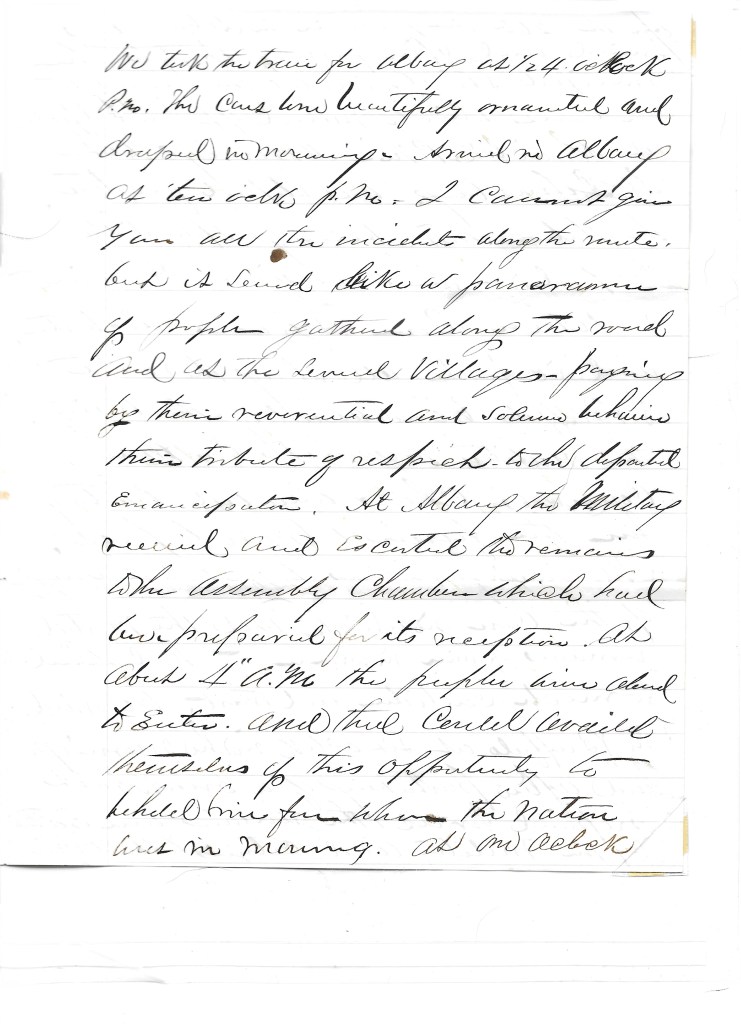 We took the train for Albany at 1/2 4 oclock
P.m. The Cars were beautifully ornamented and
draped in mourning - Arrived in Albany
at ten oclk p.m. - I Cannot give
you all the incidents along the route.
but it seemed like a panorama
of people gathered along the road
and at the several Villages - paying
by their reverential and solemn behavior
their tribute of respect - to the departed
Emancipator. At Albany the Military
received and Escorted the remains
to the Assembly Chamber which had
been prepared for its reception. At
about 4" A.M the people were allowed
to Enter. and thus Could avail
themselves of this opportunity to
behold him for whom the Nation
was in mourning. at one oclock